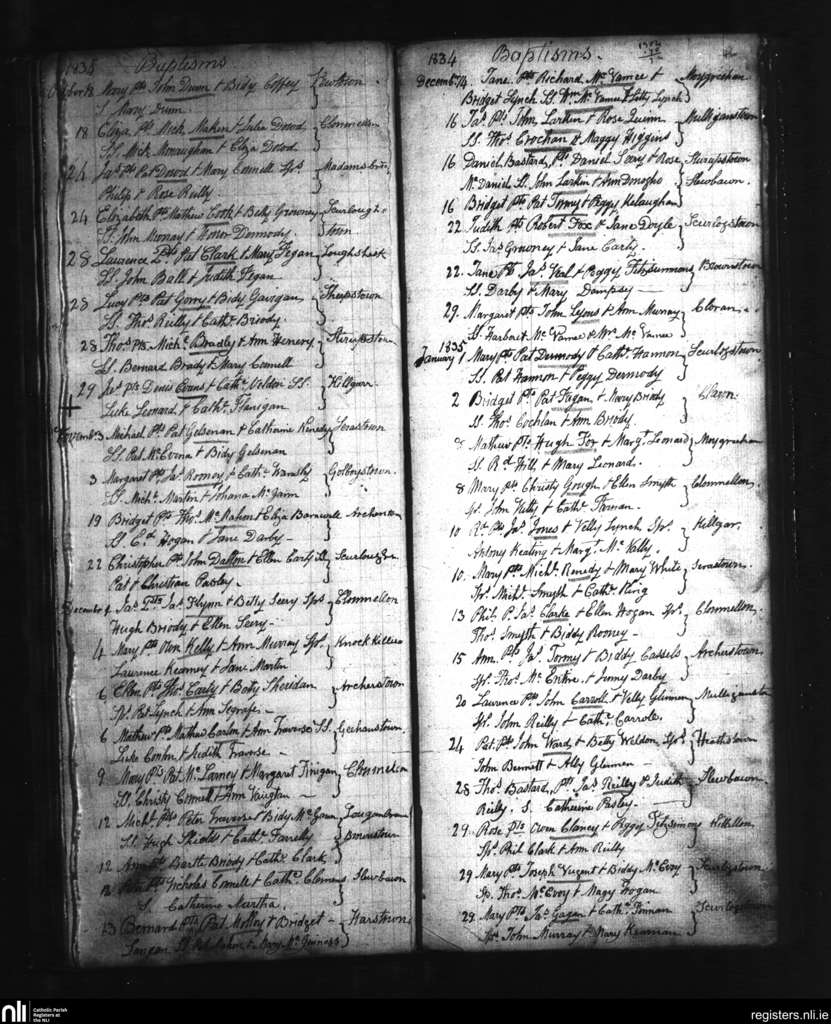 1835 Baptisms
October 12 Mary Pts John Dunn & Bidy Coffey } Newtown
S. Mary Dunn.
18 Eliza Pts Mick Maken & Julia Dowd } Clonmellon
SS. Mick Monaughan & Eliza Dowd
24 Jas Pts Pat Dowd & Mary Connell Sps } Madams
Philip & Rose Reilly.
24 Elizabeth Pts Mathew Cook & Betty Growney } Scurlough-
SS. John Murray & Honor Dermody } town
28 Lawrence Pts Pat Clark & Mary Fegan } Loughstock
SS. John Ball & Judith Fegan
28 Lucy Pts Pat Gorry & Bidy Gavigan } Sheepstown
SS. Thos Reilly & Cathe Briody.
28 Thos Pts Michl Bradley & Ann Henery }
SS. Bernard Brady & Mary Connell
29 Jas Pts Denis Evans & Cathe Veldon SS. } Killgar.
Luke Leonard, & Cathe Flanigan
November 3 Michael Pts Pat Gelsenan & Catharine Kenedy }
SS Pat McEvoy & Bidy Gelsenan
3 Margaret Pts Jas Rooney & Cathe } Golboystown.
SS. Michl Martin & Johana
19 Bridget Pts Thos McMahon & Eliza Barnwall } Archerstown
SS Ed Hogan & Jane Darby -
22 Christopher Pts John Dalton & Ellen Carly SS }
Pat & Christian Pasley.
December 4 Jas Pts Jas Flynn & Betty Seery Sps } Clonmellon
Hugh Briody & Ellen Seery -
4 Mary Pts Own Kelly & Ann Murray Sps } Knock Killeen
Laurence Kearney & Jane Martin
6 Ellen Pts Thos Carly & Betty Sheridan } Archerstown
Sps. Pat Lynch & Ann Segrafe. -
6 Mathew Pts Mathew Carlon & Ann Traverse SS. } Geehanstown.
Luke Conlon & Judith Traverse -
9 Mary Pts Pat McLarney & Margaret Finigan } Clonmellon
SS. Christy Connell & Ann Vaughan -
12 Michl Pts Peter Traverse & Bidy McGann }
SS. Hugh Shields & Cathe Farrelly } Brownstown
12 Ann Pts Bartle Briody & Cathe Clark }
12 Pts Nicholas Connell & Cathe Clemens } Stewbawn
S. Catherine Murtha.
13 Bernard Pts Pat Molloy & Bridget - } Harstown
SS Pat Maken & Mary McGuiness
1834 Baptisms.
December 14. Jane Pts Richard McVamee & } Moygrechan
Bridget Lynch SS. Wm McVamee & Letty Lynch
16 Jas Pts John Larkin & Rose Quinn } Mulliganstown
SS. Thos Crochan & Maggy Higgins
16 Daniel, Bastard, Pts Daniel Seery & Rose } Sturapstown
McDaniel SS. John Larkin & Ann } Stewbawn.
16 Bridget Pts Pat Tormy & Peggy Kelaughan }
22 Judith Pts Robert Fox & Jane Doyle } Scurlogstown
SS. Jas Growney & Jane Carly.
22. Jane Pts Jas Veal & Peggy Fitzsimmons } Brownstown
SS. Darby & Mary Dempsey -
29. Margaret Pts John Lyons & Ann Murray } Cloran,
SS Harbert McVamee & Mrs McVamee
1835
January 1 Mary Pts Pat Dermody & Cathe Hannon } Scurlogstown
SS. Pat Hannon & Peggy Dermody
2 Bridget Pts Pat Fagan & Mary Briody }
SS. Thos Cochlan & Ann Briody.
8 Mathew Pts Hugh Fox & Margt Leonard } Moygrechan
SS. Rd Hill & Mary Leonard.
8 Mary Pts Christy Gough & Ellen Smyth } Clonmellon,
Sps. John Kelly & Cathe Farnan.
10 Rd Pts Jas Jones & Kitty Lynch Sps. } Killgar,
Antony Keating & Margt McNally.
10. Mary Pts Michl Kenedy & Mary White }
Sps. Michl Smyth & Cathe King
13 Phil. P. Jas Clarke & Ellen Hogan Sps. } Clonmellon,
Thos Smyth & Biddy Rooney -
15 Ann. Pts Jas Tormy & Biddy Cassels } Archerstown,
Sps. Thos McEntire & Jenny Darby
20 Laurence Pts John Carroll & Nelly Glennen } Mulliganstown
Sps. John Reilly & Cathe Carrole.
24 Pat. Pts John Ward & Betty Weldon, Sps } Heathstown
John Bennett & Ally Glennen -
28 Thos Bastard, Pts Jas Reilly & Judith } Stewbawn.
Reilly. S. Catherine Pasley.
29. Rose Pts Owen Clancy & Peggy Fitzsimons } Killallon
Sps. Phil Clark & Ann Reilly
29 Mary Pts Joseph Nugent & Biddy McEvoy } Scurlogstown
Sps. Thos McEvoy & Nagy Hogan
29. Mary Pts Jas Gagen & Cathe Finnan } Scurlogstown
Sps. John Murray & Mary Keenan
nli Catholic Parish
Registers at
the NLI
registers.nli.ie